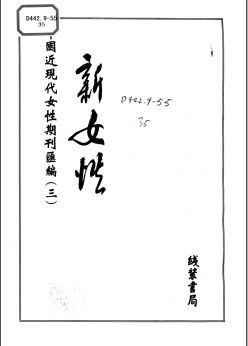 D442.9-55
35
國近現代女性期刊匯編(三)
新女性
D442.9-55
35
綫裝書局